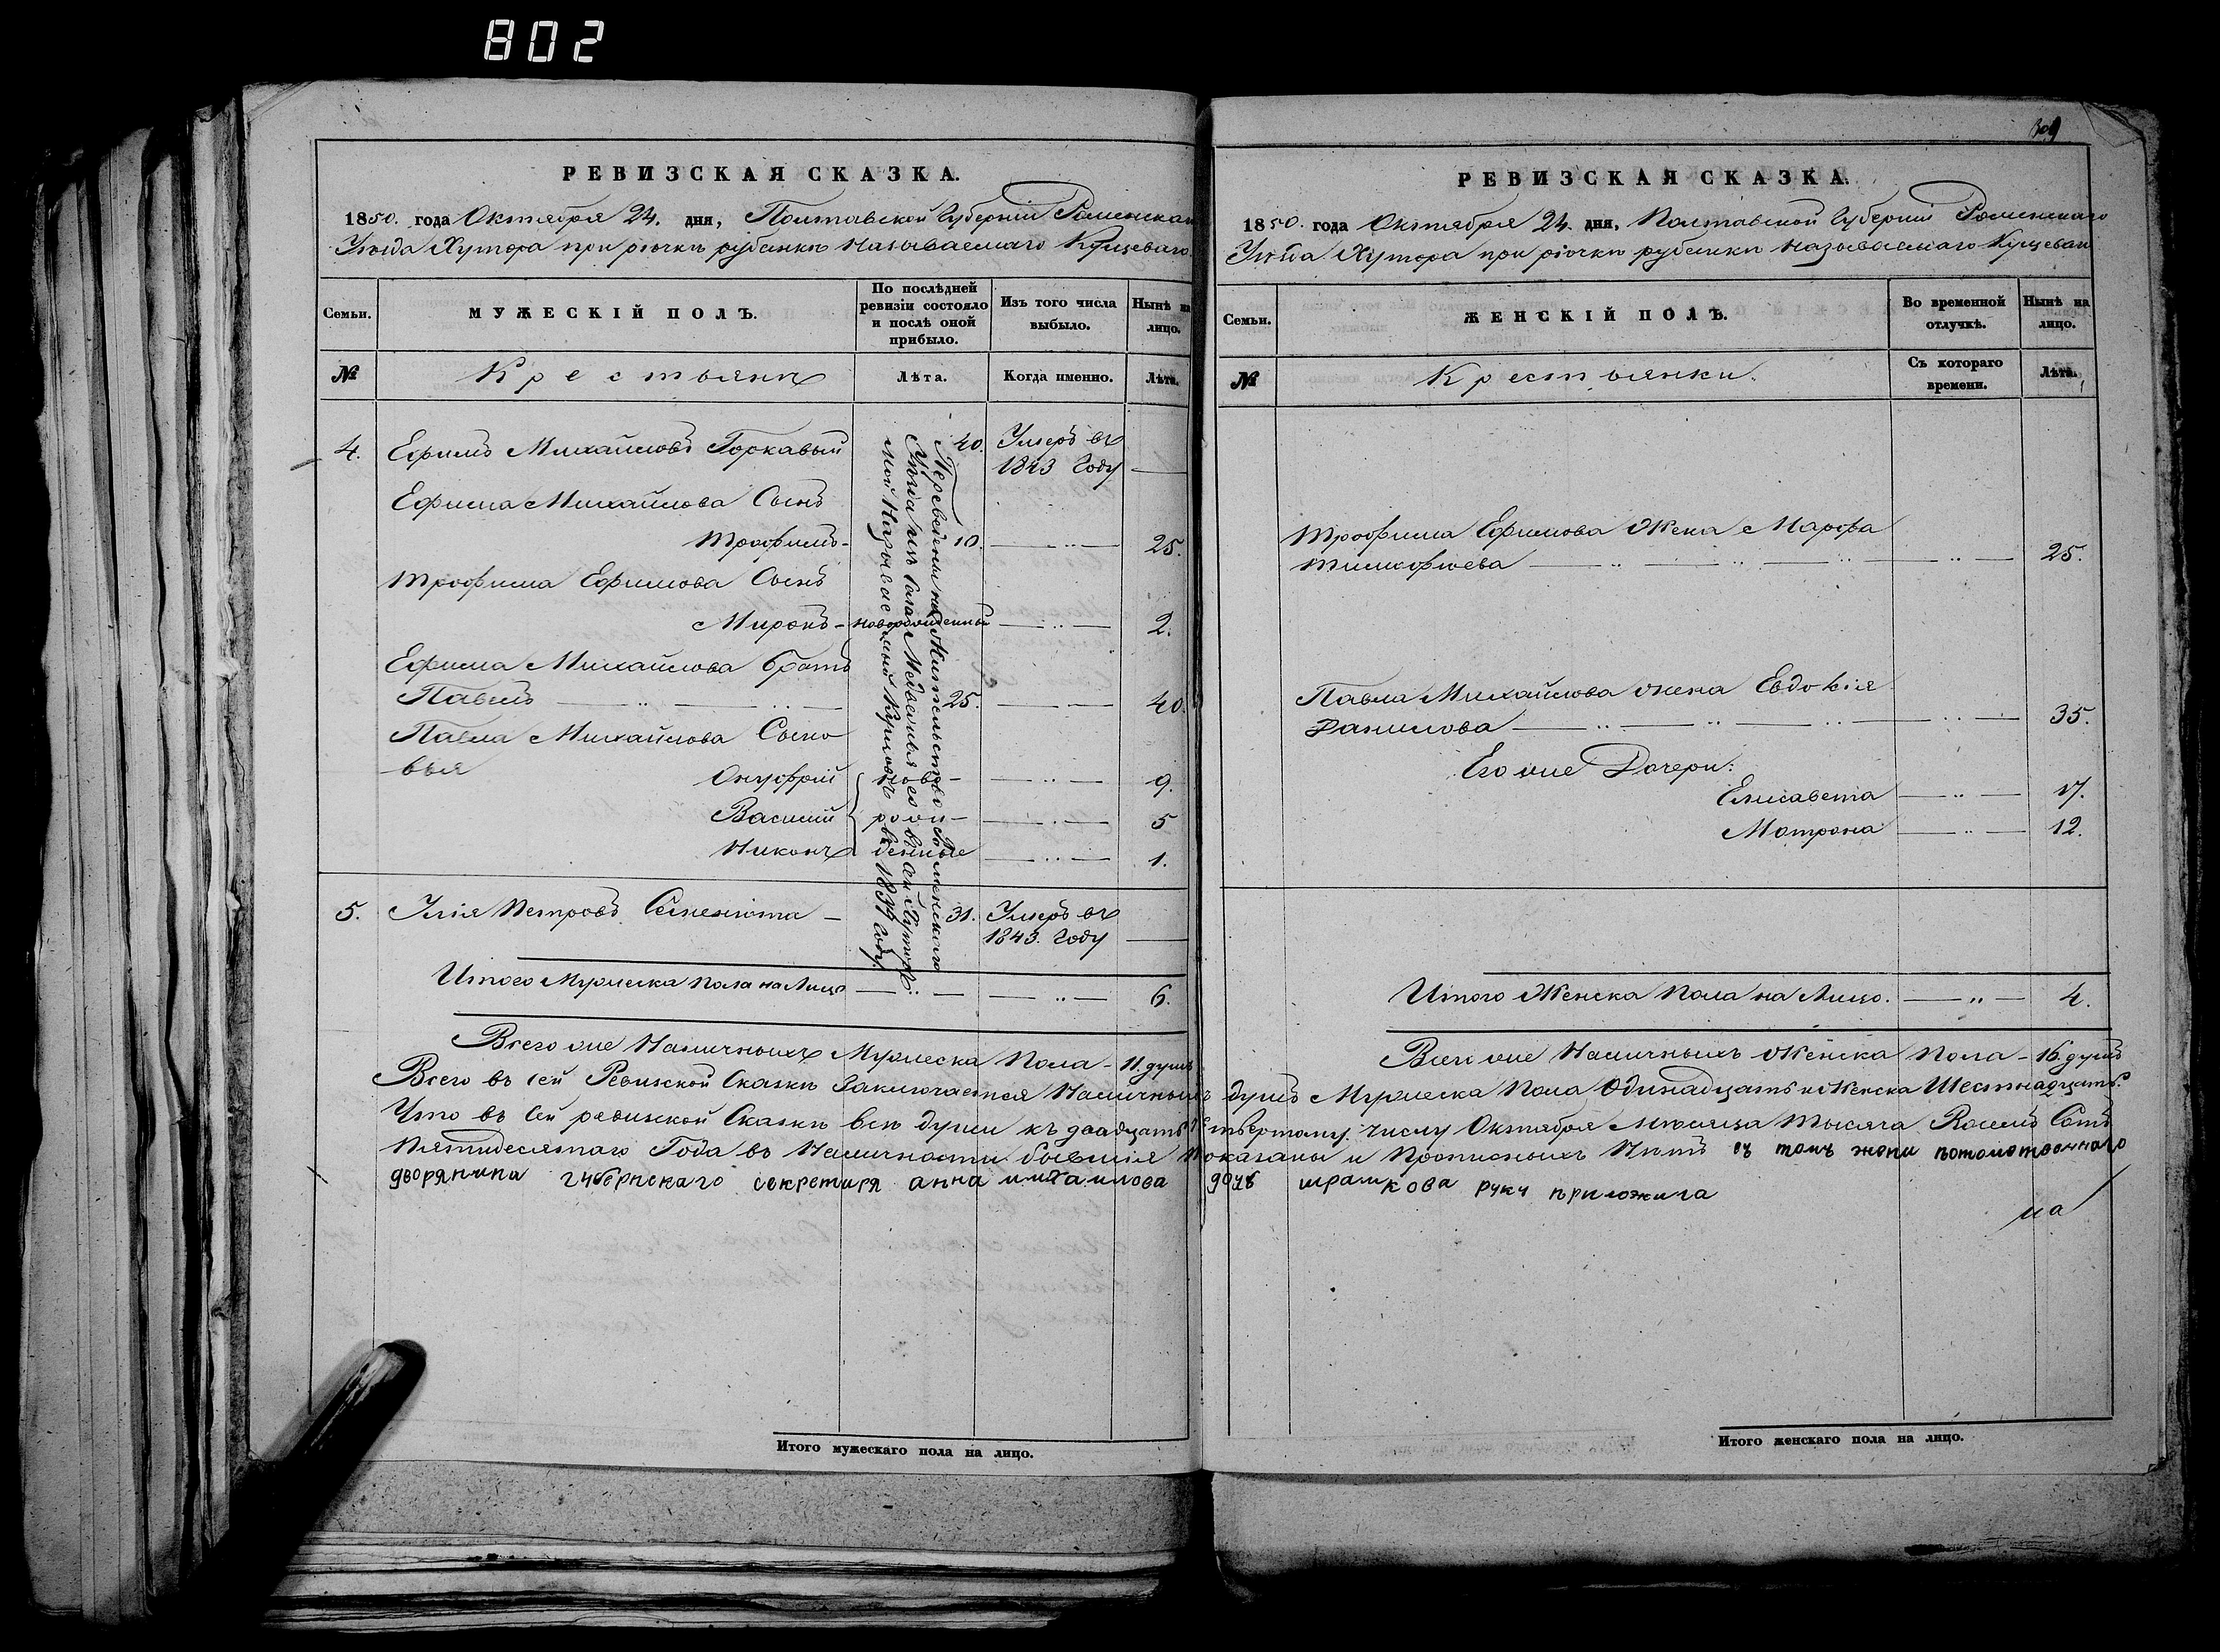 802
309
РЕВИЗСКАЯ СКАЗКА.
1850. года Октября 24. дня, Полтавской Губерніи Роменскаго
Уѣзда Хутора при рѣчкѣ рубанкѣ называемаго
Семьи.
МУЖЕСКІЙ ПОЛЪ.
По послѣдней ревизіи состояло и послѣ оной прибыло.
Изъ того числа выбыло.
Нынѣ на лицо.
№
Крестьянъ
Лѣта.
Когда именно.
Лѣта.
4. Ефимъ Михайловъ Горкавый 40. Умеръ въ
1843 Году —
Ефима Михайлова Сынъ
Трофимъ - 10. — „ — 25.
Трофима Ефимова Сынъ
Миронъ - новорожденный — „ — 2.
Ефима Михайлова братъ
Павелъ — „ — „ — 25. — „ — 40.
Павла Михайлова Сыно
вья
Онуфрій ново- — „ — 9.
Василий рож- — „ — 5
Никонъ денные — „ — 1.
Переведены на Жительство Роменского
Уѣзда изъ Села въ сей Хуторъ
мой Называемый въ 1837 Году.
5. Илія Петровъ Семенюта — 31. Умеръ въ
1843. Году —
Итого Мужеска пола на Лицо — „ — — „ — 6.
Всего же Наличныхъ Мужеска Пола - 11. душъ
РЕВИЗСКАЯ СКАЗКА.
1850. года Октября 24. дня, Полтавской Губерніи Роменскаго
Уѣзда Хутора при рѣчкѣ рубанкѣ называемаго
Семьи.
ЖЕНСКІЙ ПОЛЪ.
Во временной отлучкѣ.
Нынѣ на лицо.
№
Крестьянки.
Съ котораго времени.
Лѣта.
Трофима Ефимова Жена Марфа
Тимофѣева — „ — „ — „ — „ — 25.
Павла Михайлова жена Евдокія
Данилова — „ — „ — „ — „ — 35.
Его же Дочери:
Елисавета — „ — 17.
Матрона — „ — 12.
Итого Женска пола на Лицо. — „ — 4.
Всего же Наличныхъ Женска Пола - 16. душъ
Всего въ сей Ревизской Сказкѣ Заключается Наличныхъ душъ Мужеска Пола Одинадцать и Женска Шестнадцать.
Что въ сей ревизской Сказкѣ всѣ души къ двадцать Четвертому числу Октября Мѣсяца Тысяча Восемь Сотъ
Пятидесятаго Года въ Наличности бывшія показаны и Прописныхъ Нѣтъ въ томъ жена потомственнаго
дворянина губернскаго секретаря анна михаилова дочь руку приложила
Итого мужескаго пола на лицо.
Итого женскаго пола на лицо.